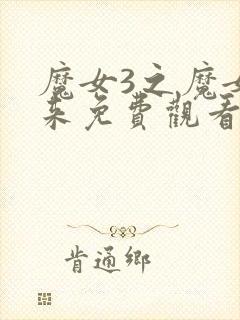 魔女3之魔女
来免費觀看
肯通鄉